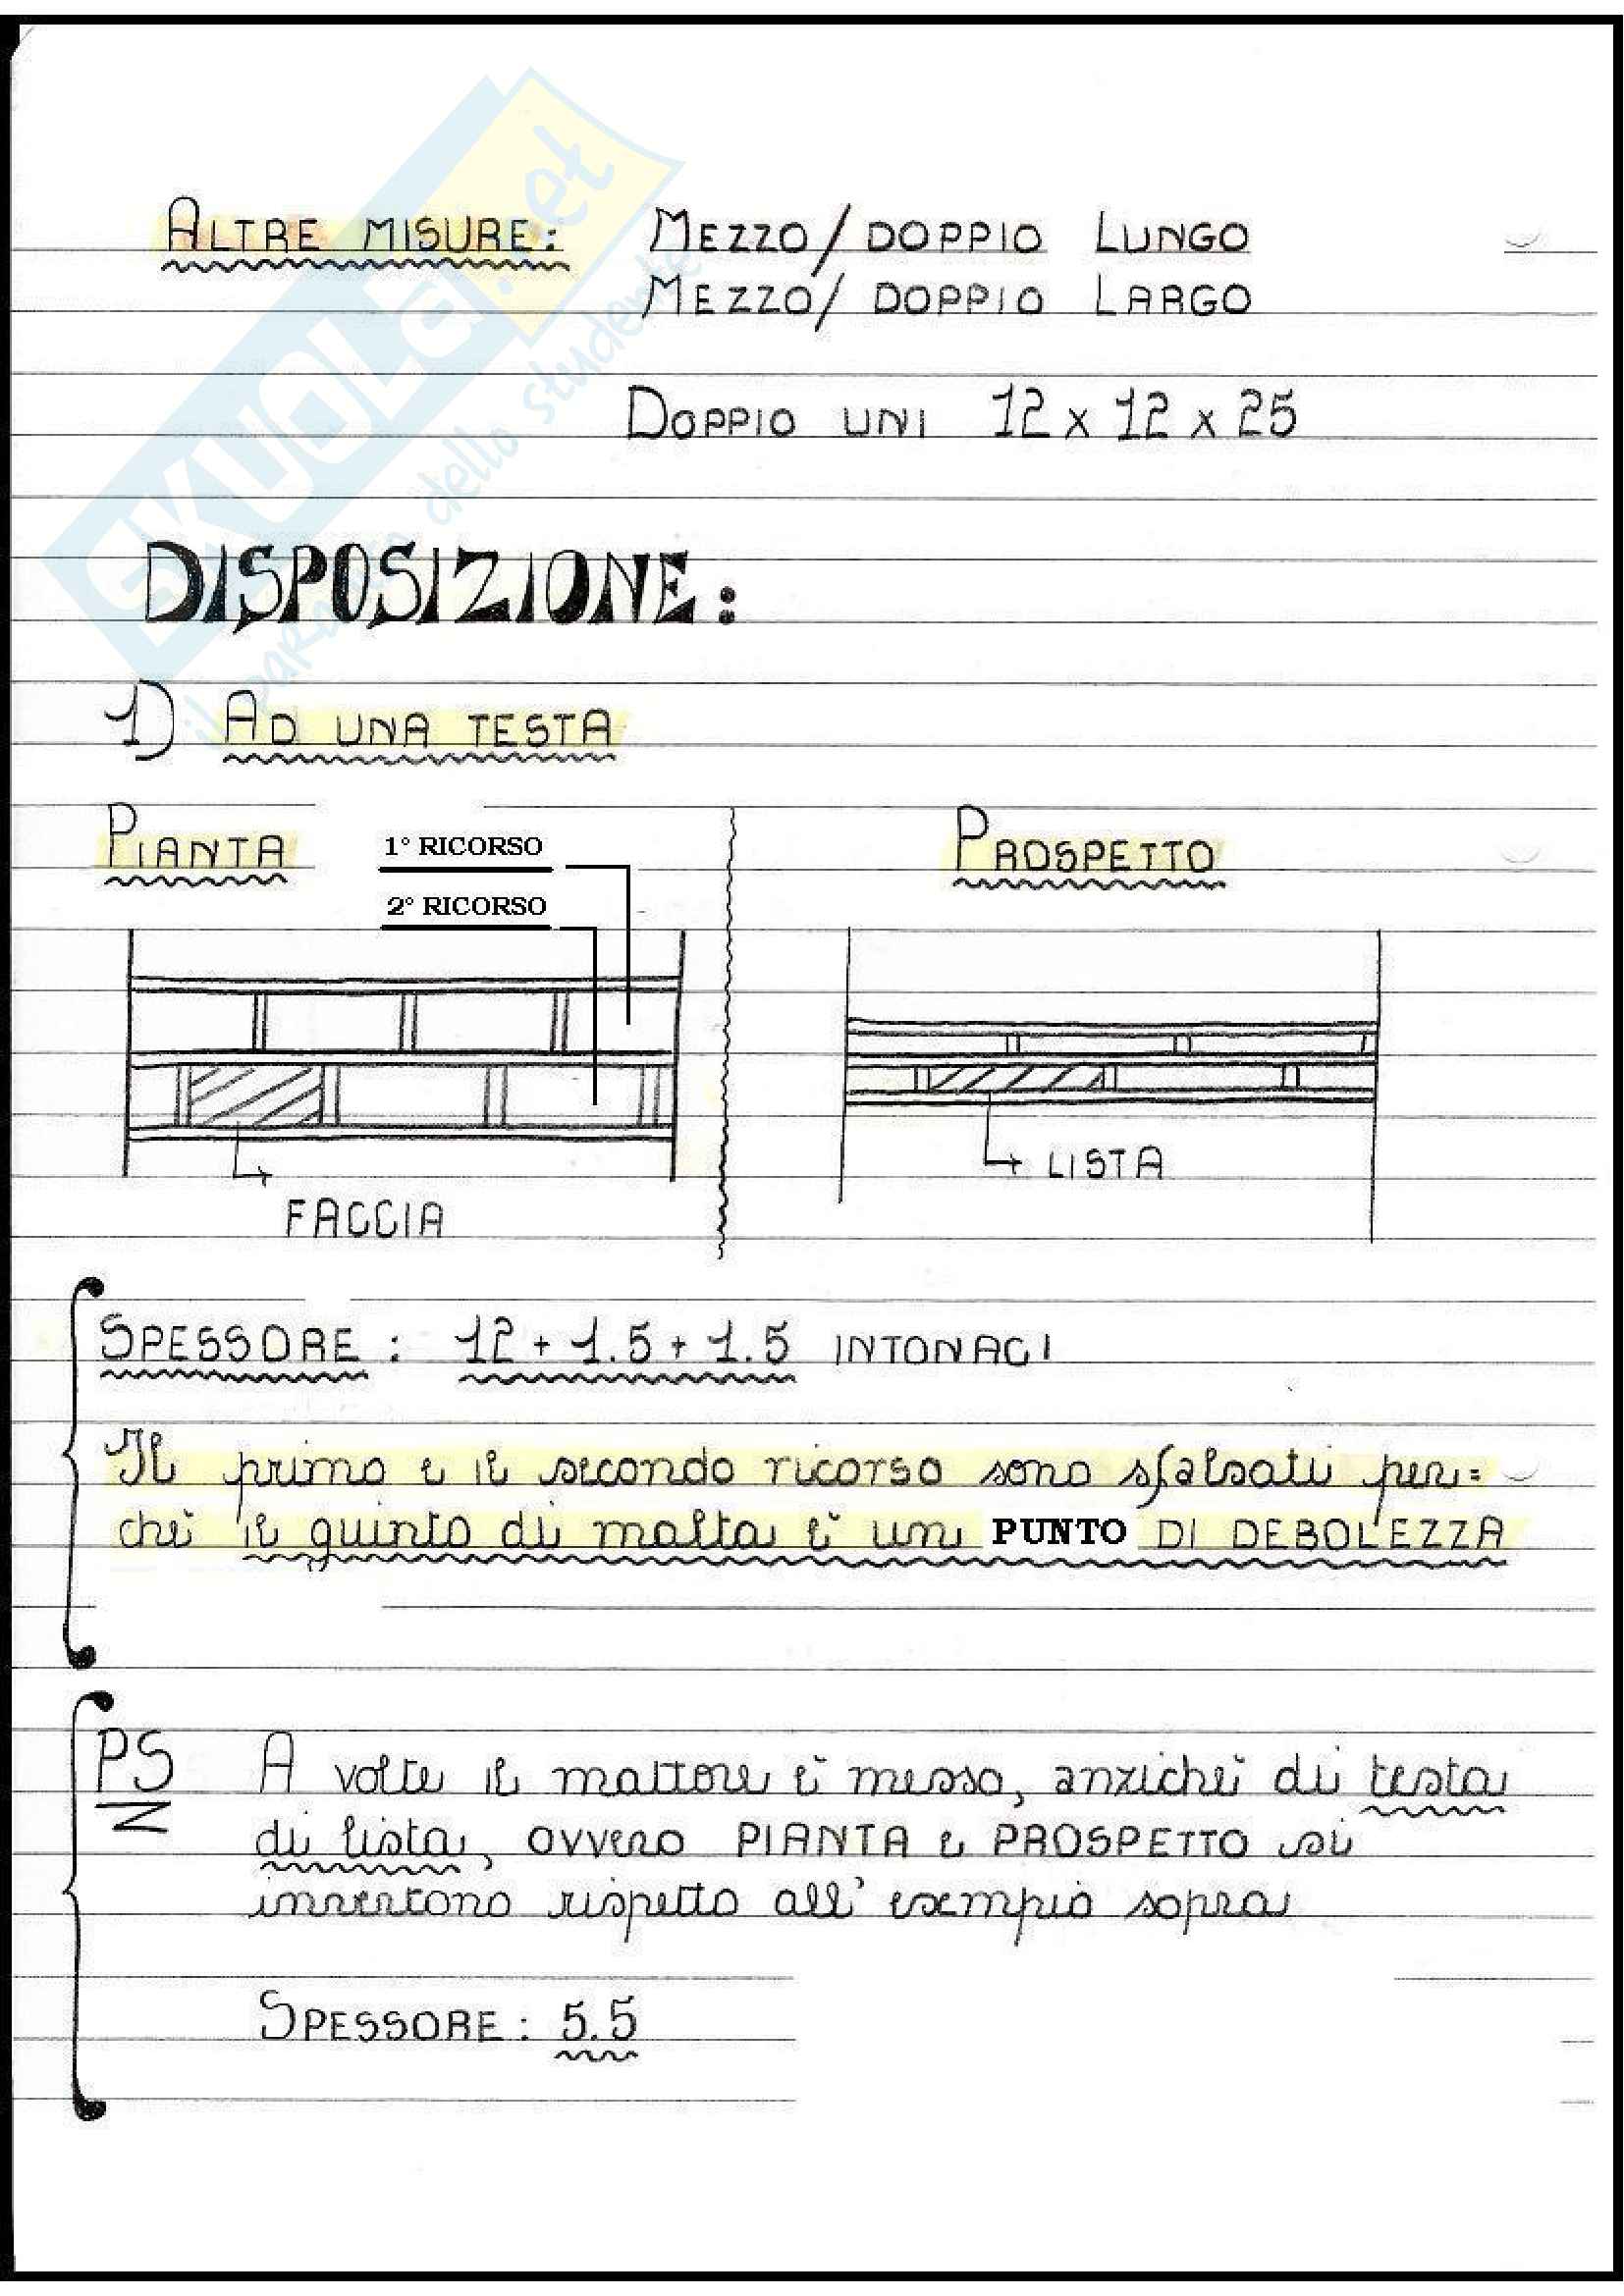 SKUOLA.net
il paradiso dello studente
ALTRE MISURE: MEZZO/DOPPIO LUNGO
MEZZO/DOPPIO LARGO
DOPPIO UNI 12 x 12 x 25
DISPOSIZIONE:
1) AD UNA TESTA
PIANTA
1° RICORSO
2° RICORSO
FACCIA
PROSPETTO
LISTA
SPESSORE: 12 + 1.5 + 1.5 INTONACI
Il primo e il secondo ricorso sono sfalsati per=
chè il quinto di malta è un PUNTO DI DEBOLEZZA
PS A volte il mattone è messo, anzichè di testa
di lista, ovvero PIANTA e PROSPETTO si
invertono rispetto all'esempio sopra
SPESSORE: 5.5